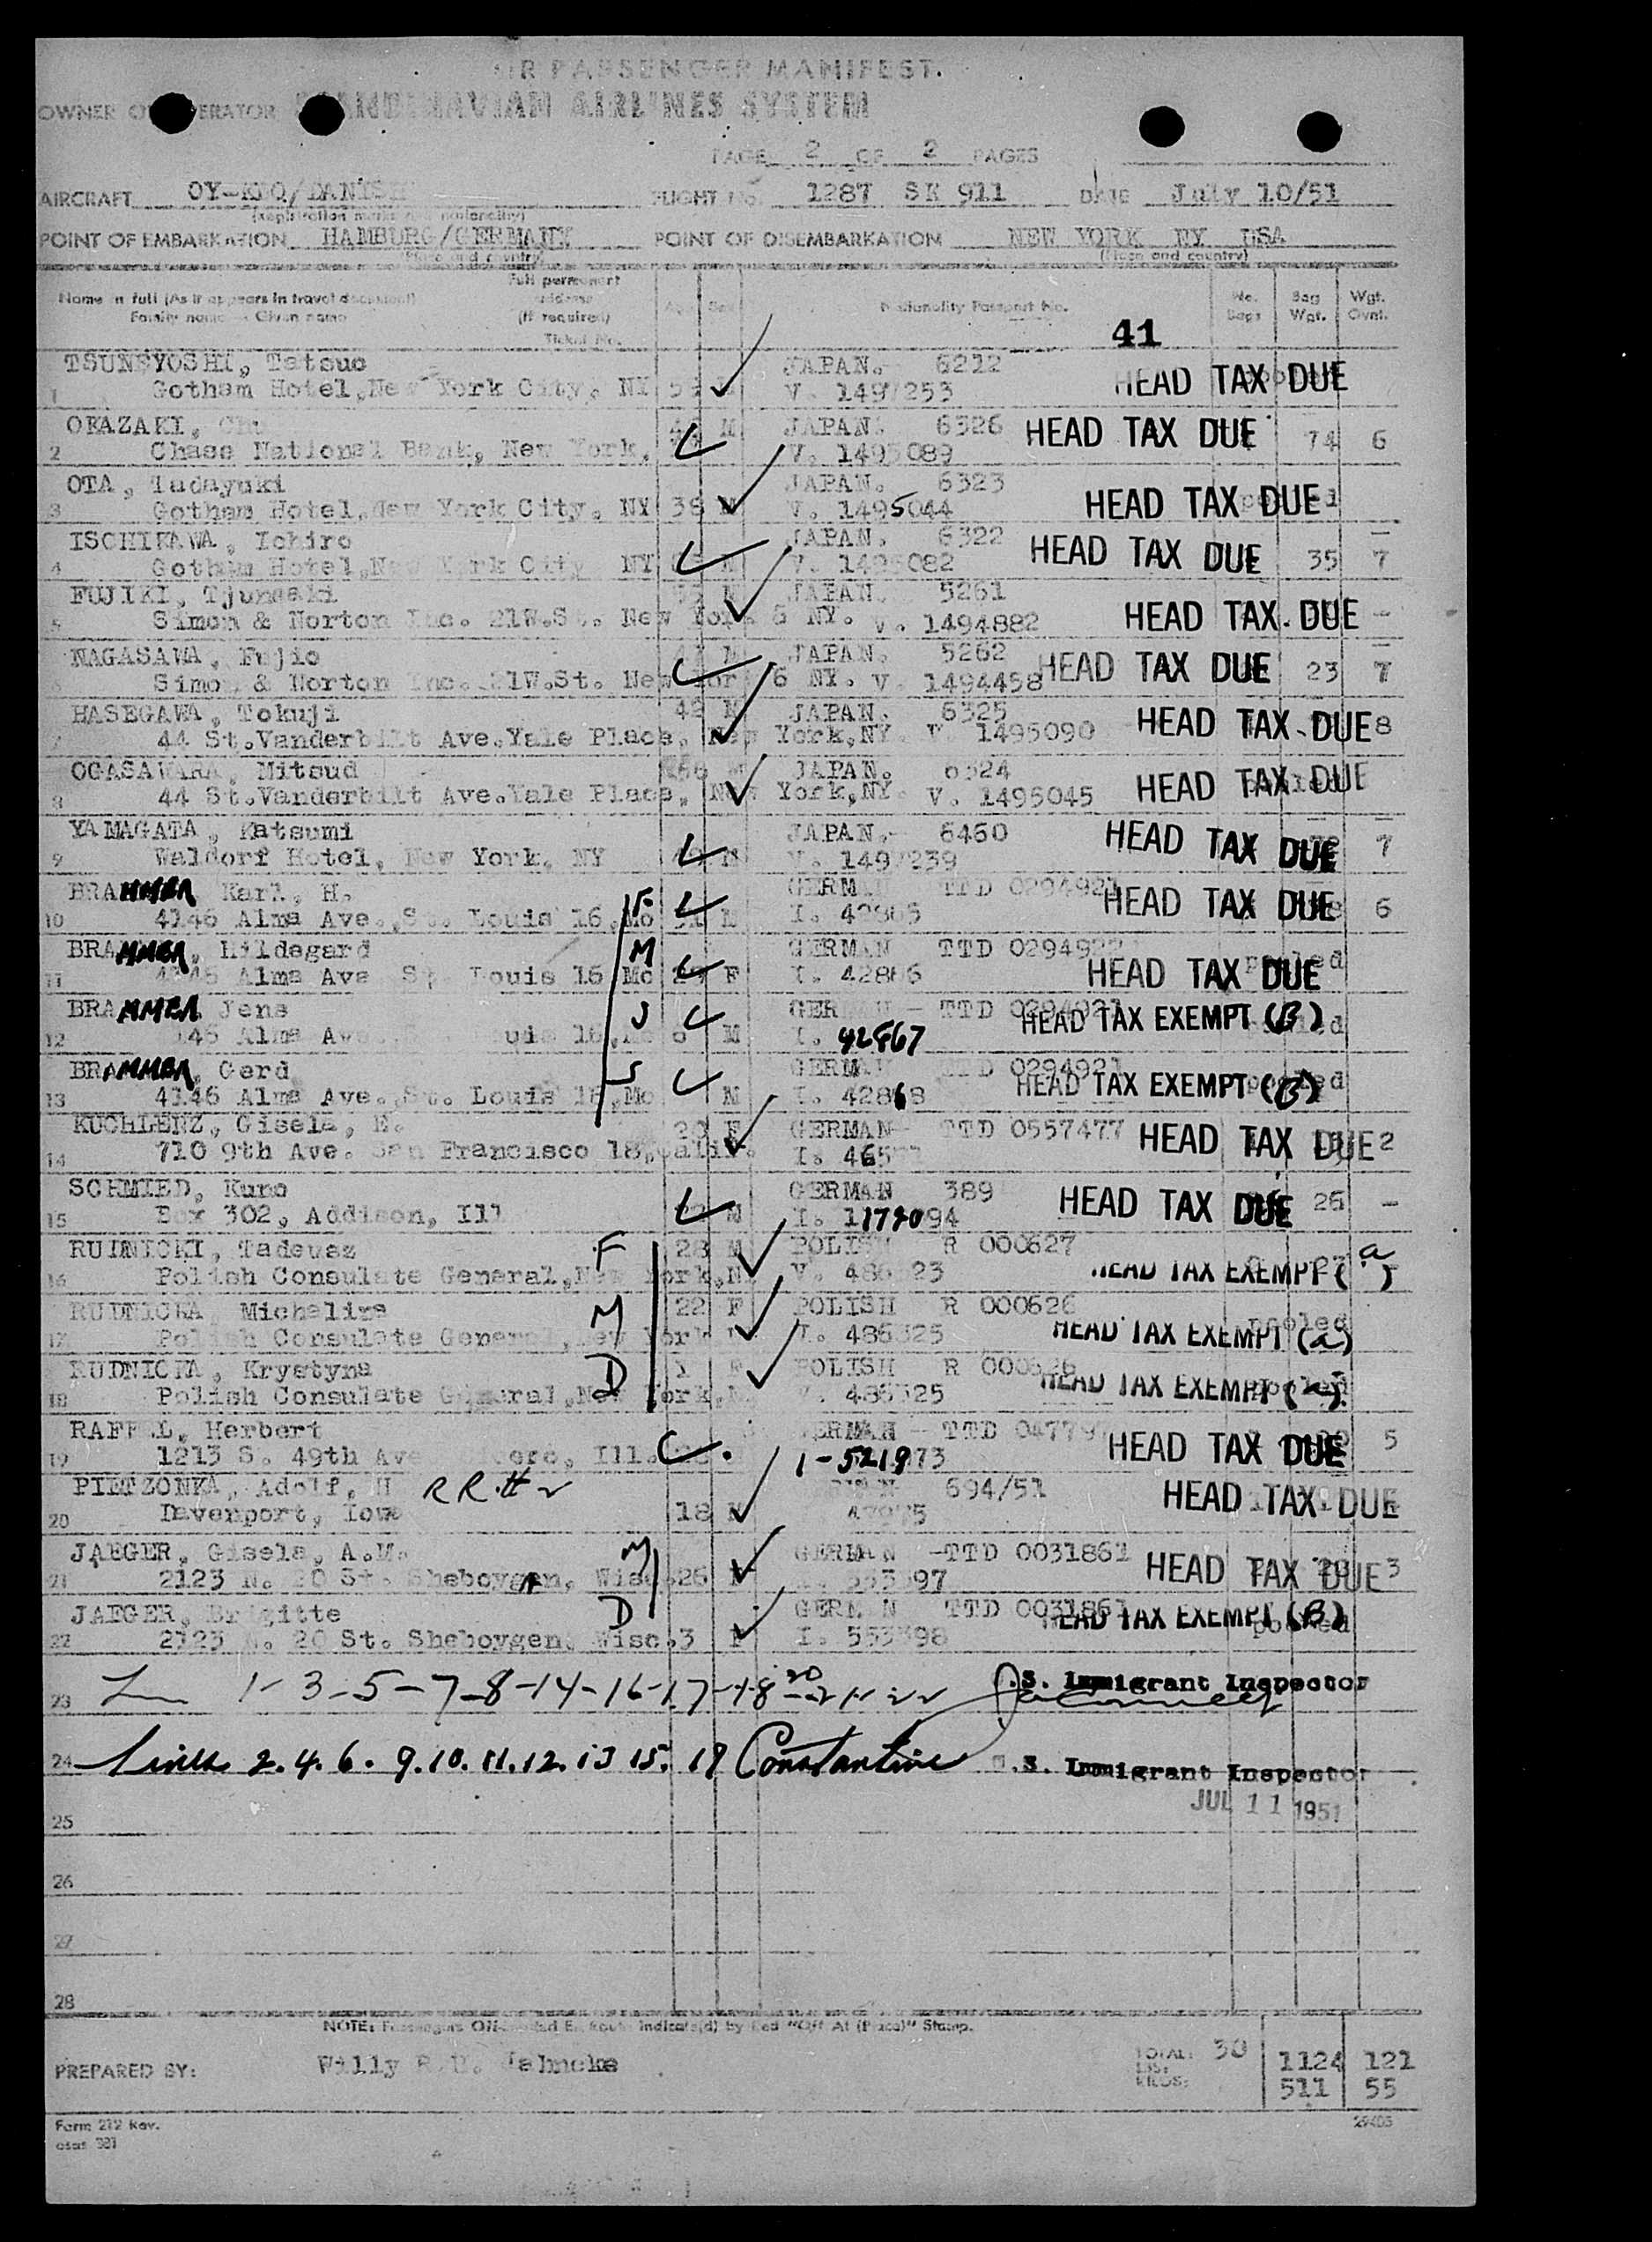 AIR PASSENGER MANIFEST.
OWNER OR OPERATOR SCANDINAVIAN AIRLINES SYSTEM
PAGE 2 OF 2 PAGES
AIRCRAFT OY-KDO/DANISH FLIGHT No. 1287 SK 911 DATE July 10/51
(Registration marks and nationality)
POINT OF EMBARKATION HAMBURG/GERMANY POINT OF DISEMBARKATION NEW YORK NY USA
(Place and country) (Place and country)
Name in full (As it appears in travel document) Family name - Given name Full permanent address (If required) Ticket No. Age Sex Nationality Passport No. No. Bags Bag Wgt. Wgt. Ovnt.
41
TSUNEYOSHI, Tatsuo JAPAN. 6212
1 Gotham Hotel, New York City, NY V. 1497253 HEAD TAX DUE
OKAZAKI, M JAPAN. 6326 HEAD TAX DUE 74 6
2 Chase National Bank, New York, V. 1495089
OTA, Tadayuki JAPAN. 6323
3 Gotham Hotel, New York City, NY 38 M V. 1495044 HEAD TAX DUE
ISCHIKAWA, Ichiro JAPAN. 6322 —
4 Gotham Hotel, New York City NY M V. 1495082 HEAD TAX DUE 35 7
FUJIKI, Tjunsaki M JAPAN. 5261
5 Simon & Norton Inc. 21W.St. New York 6 NY. V. 1494882 HEAD TAX DUE -
NAGASAWA, Fujio M JAPAN. 5262 —
6 Simon & Norton Inc. 21W.St. New York 6 NY. V 1494458 HEAD TAX DUE 23 7
HASEGAWA, Tokuji 42 M JAPAN. 6325
7 44 St.Vanderbilt Ave.Yale Place, New York,NY V. 1495090 HEAD TAX DUE 8
OGASAWARA, Mitsud JAPAN. 6324
8 44 St.Vanderbilt Ave.Yale Place, New York,NY. V. 1495045 HEAD TAX DUE
YAMAGATA, Katsumi JAPAN. 6460 —
9 Waldorf Hotel, New York, NY M V. 1497239 HEAD TAX DUE 7
BRAMMER, Karl, H. F GERMAN TTD 0294921
10 4146 Alma Ave., St. Louis 16, Mo M I. 42865 HEAD TAX DUE 6
BRAMMER, Hildegard M GERMAN TTD 029492
11 4146 Alma Ave St. Louis 16 Mo F I. 42866 HEAD TAX DUE pooled
BRAMMER Jens S GERMAN - TTD 0294921
12 4146 Alma Ave. Louis 16, Mo M I. 42867 HEAD TAX EXEMPT (B) pooled
BRAMMER, Gerd S GERMAN TTD 0294921
13 4146 Alma Ave., St. Louis 16, Mo M I. 42868 HEAD TAX EXEMPT (B) pooled
KUCHLENZ, Gisela, E. F GERMAN- TTD 0557477
14 710 9th Ave. San Francisco 18, Calif. I. 465 HEAD TAX DUE 2
SCHMIED, Kuno GERMAN 389
15 Box 302, Addison, Ill M I. 1179094 HEAD TAX DUE 26 -
RUDNICKI, Tadeusz F 28 M POLISH R 000627
16 Polish Consulate General, New York, N V. 486 23 HEAD TAX EXEMPT (a)
RUDNICKA, Michalina M 22 F POLISH R 000626
17 Polish Consulate General, New York V. 486325 HEAD TAX EXEMPT (a) pooled
RUDNICKA, Krystyna D 1 F POLISH R 000626
18 Polish Consulate General, New York, V. 486325 HEAD TAX EXEMPT (a) pooled
RAFFEL, Herbert GERMAN - TTD 04779
19 1213 S. 49th Ave Cicero, Ill. 1-521973 HEAD TAX DUE 5
PIETZONKA, Adolf, H 694/51
20 Davenport, Iowa 18 M HEAD TAX DUE
JAEGER, Gisela, A.M. M GERMAN -TTD 0031861
21 2123 N. 20 St. Sheboygan, Wisc. 26 F 553397 HEAD TAX DUE 3
JAEGER, Brigitte D GERMAN TTD 0031861
22 2123 N. 20 St. Sheboygen, Wisc. 3 F I. 553398 HEAD TAX EXEMPT (B) pooled
23 1-3-5-7-8-14-16-17-18-20-21-22 .S. Immigrant Inspector
24 Lines 2.4.6. 9.10.11.12.13 15. 19 Constantine .S. Immigrant Inspector
JUL 11 1951
25
26
27
28
NOTE: Passengers Off-loaded En Route Indicate(d) by Red "Off At (Place)" Stamp.
PREPARED BY: Willy Jahncke TOTAL: 30 1124 121
LBS: KILOS: 511 55
Form 212 Rev.